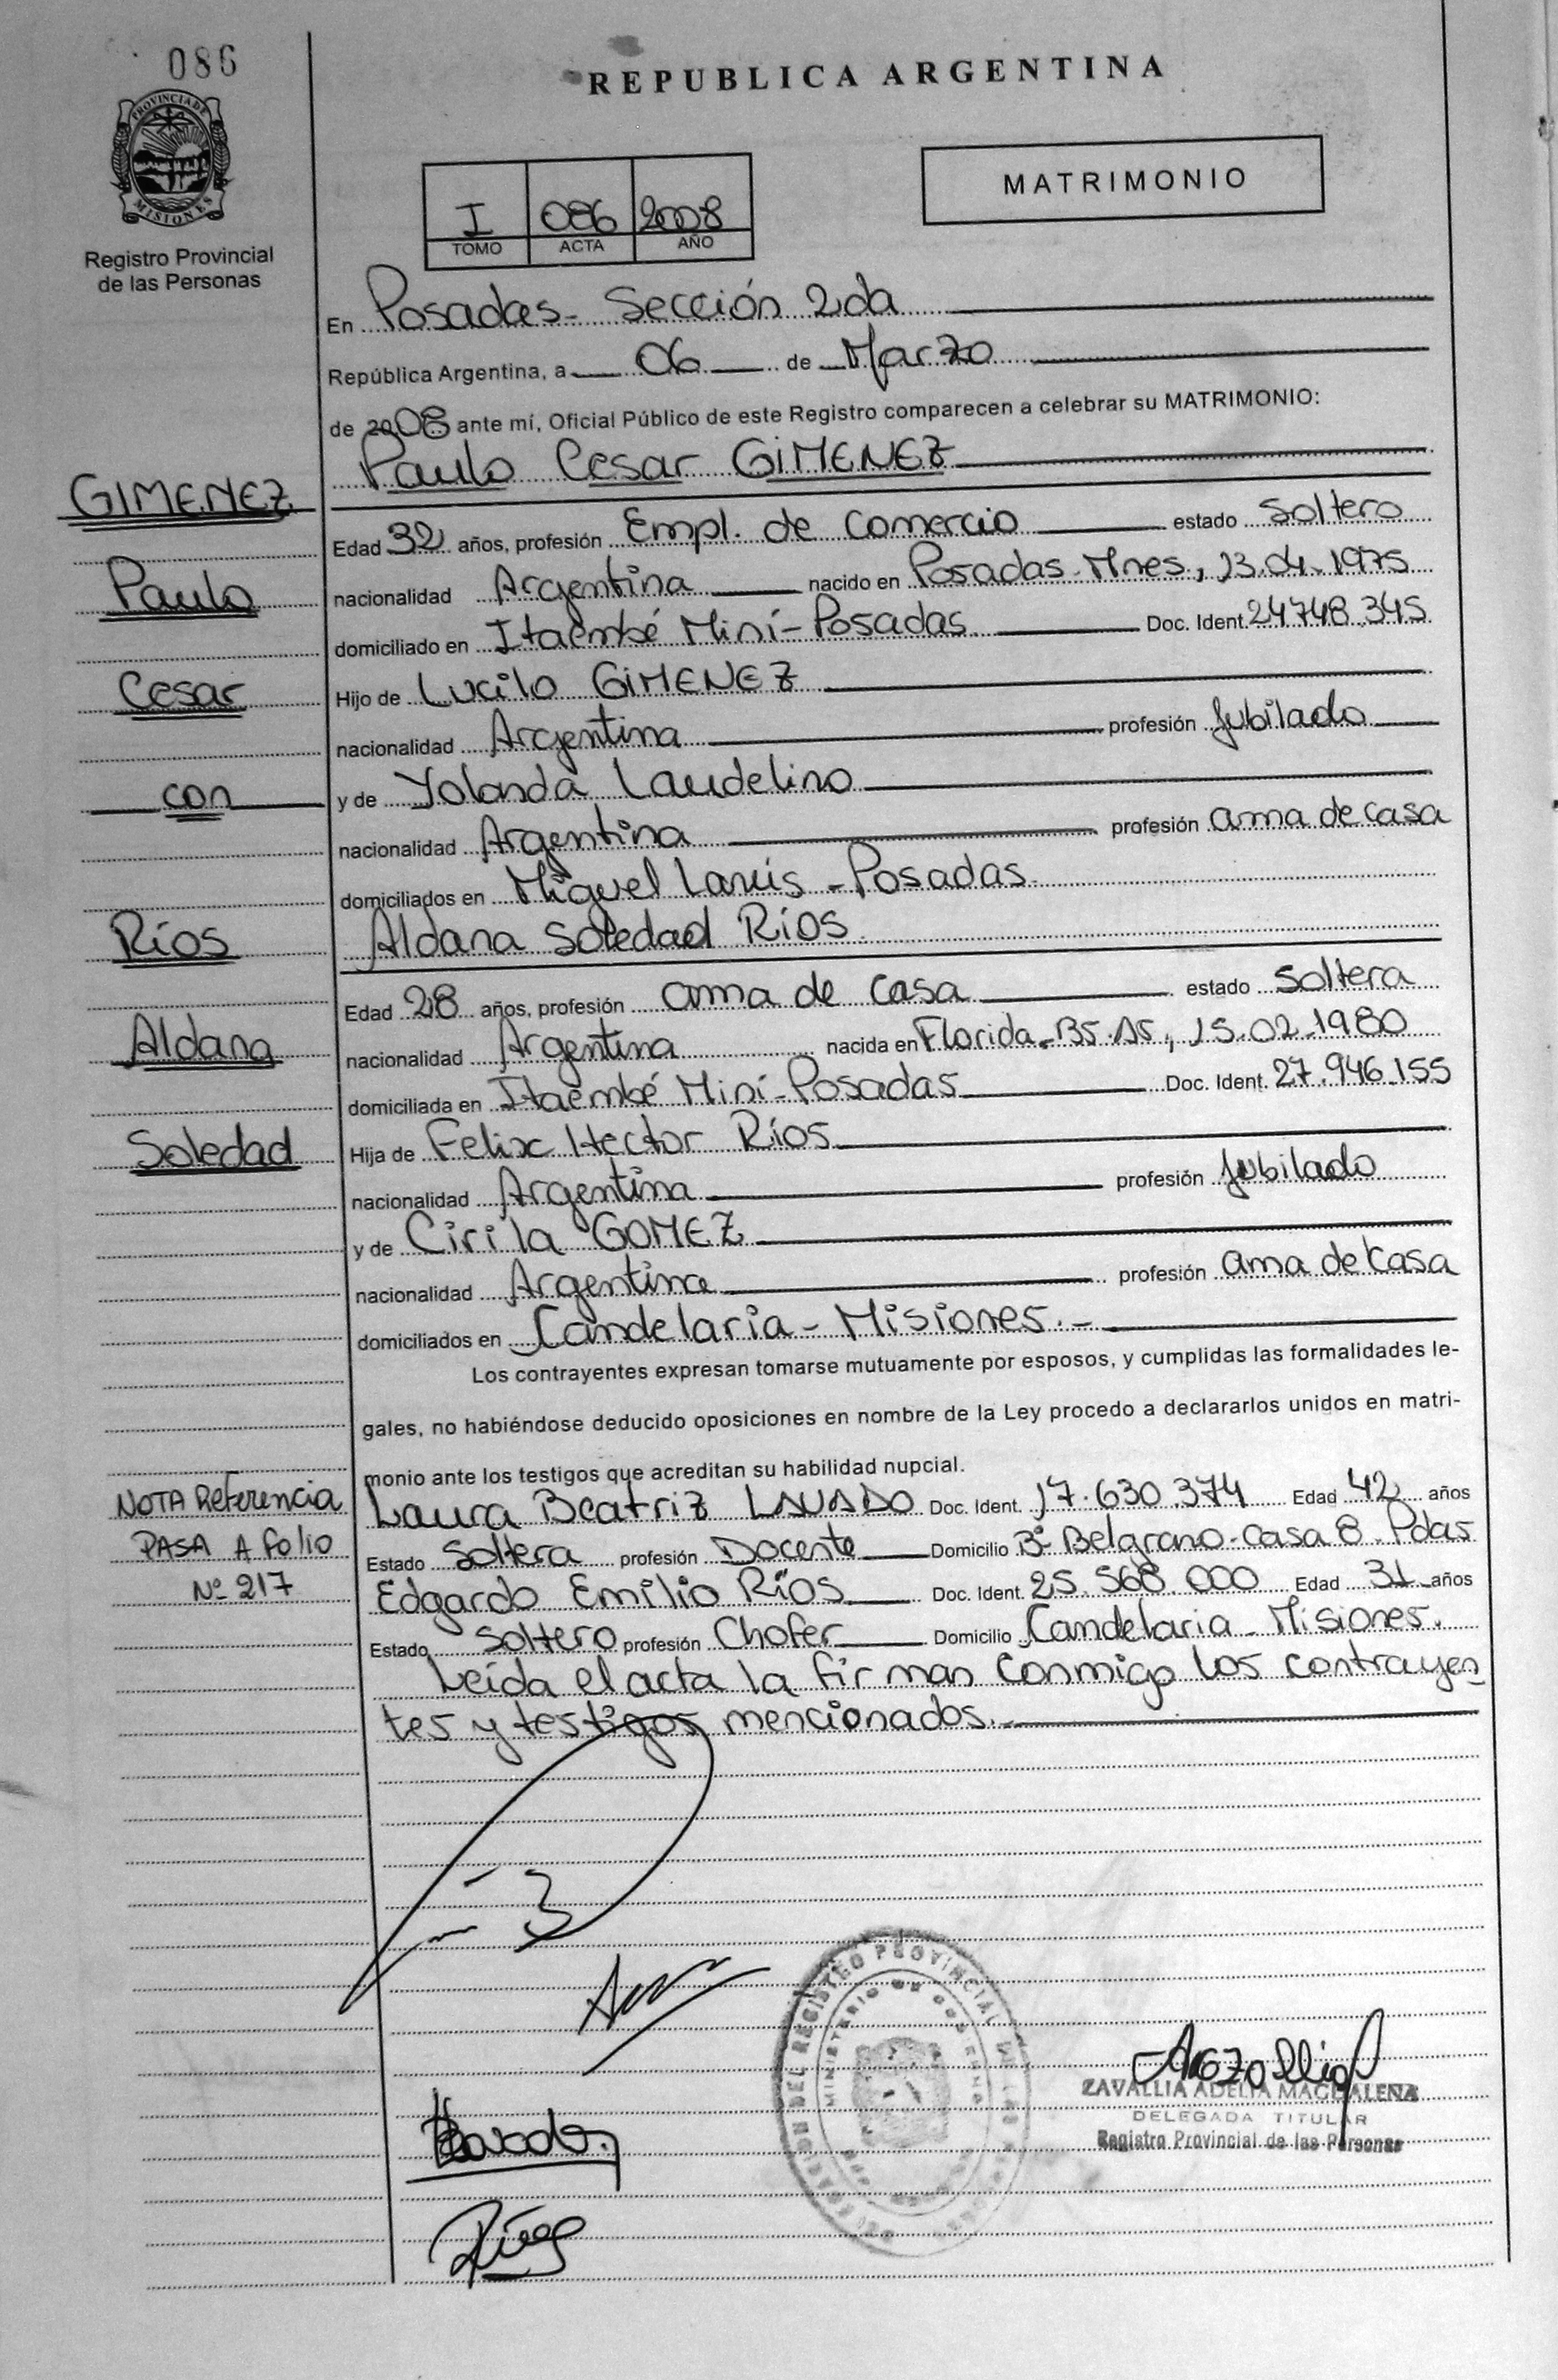 086
PROVINCIA DE
MISIONES
Registro Provincial
de las Personas
REPUBLICA ARGENTINA
MATRIMONIO
I 086 2008
TOMO ACTA AÑO
En Posadas- Sección 2da
República Argentina, a 06 de Marzo
de 2008 ante mí, Oficial Público de este Registro comparecen a celebrar su MATRIMONIO:
Paulo Cesar GIMENEZ
GIMENEZ
Edad 32 años, profesión Empl. de Comercio estado Soltero
Paulo
nacionalidad Argentina nacido en Posadas-Mnes, 23.04.1975
domiciliado en Itaembé Miní-Posadas Doc. Ident. 24.748.345
Cesar
Hijo de Lucilo GIMENEZ
nacionalidad Argentina profesión Jubilado
con
y de Yolanda Laudelino
nacionalidad Argentina profesión ama de casa
domiciliados en Miguel Lanús - Posadas
Ríos
Aldana Soledad Ríos
Edad 28 años, profesión ama de casa estado Soltera
Aldana
nacionalidad Argentina nacida en Florida-BS.AS, 15.02.1980
domiciliada en Itaembé Miní-Posadas Doc. Ident. 27.946.155
Soledad
Hija de Felix Hector Ríos
nacionalidad Argentina profesión Jubilado
y de Cirila GOMEZ
nacionalidad Argentina profesión ama de Casa
domiciliados en Candelaria - Misiones.-
Los contrayentes expresan tomarse mutuamente por esposos, y cumplidas las formalidades le-
gales, no habiéndose deducido oposiciones en nombre de la Ley procedo a declararlos unidos en matri-
monio ante los testigos que acreditan su habilidad nupcial.
NOTA Referencia
PASA A folio
Nº 217
Laura Beatriz LAVADO Doc. Ident. 17.630.374 Edad 42 años
Estado Soltera profesión Docente Domicilio Bº Belgrano-casa 8-Pdas
Edgardo Emilio Ríos Doc. Ident. 25.568.000 Edad 31 años
Estado Soltero profesión Chofer Domicilio Candelaria-Misiones.
Leída el acta la firman Conmigo los contrayen
tes y testigos mencionados.-
DEL REGISTRO PROVINCIAL DE LAS
MINISTERIO DE GOBIERNO
ZAVALLIA ADELIA MAGDALENA
DELEGADA TITULAR
Registro Provincial de las Personas